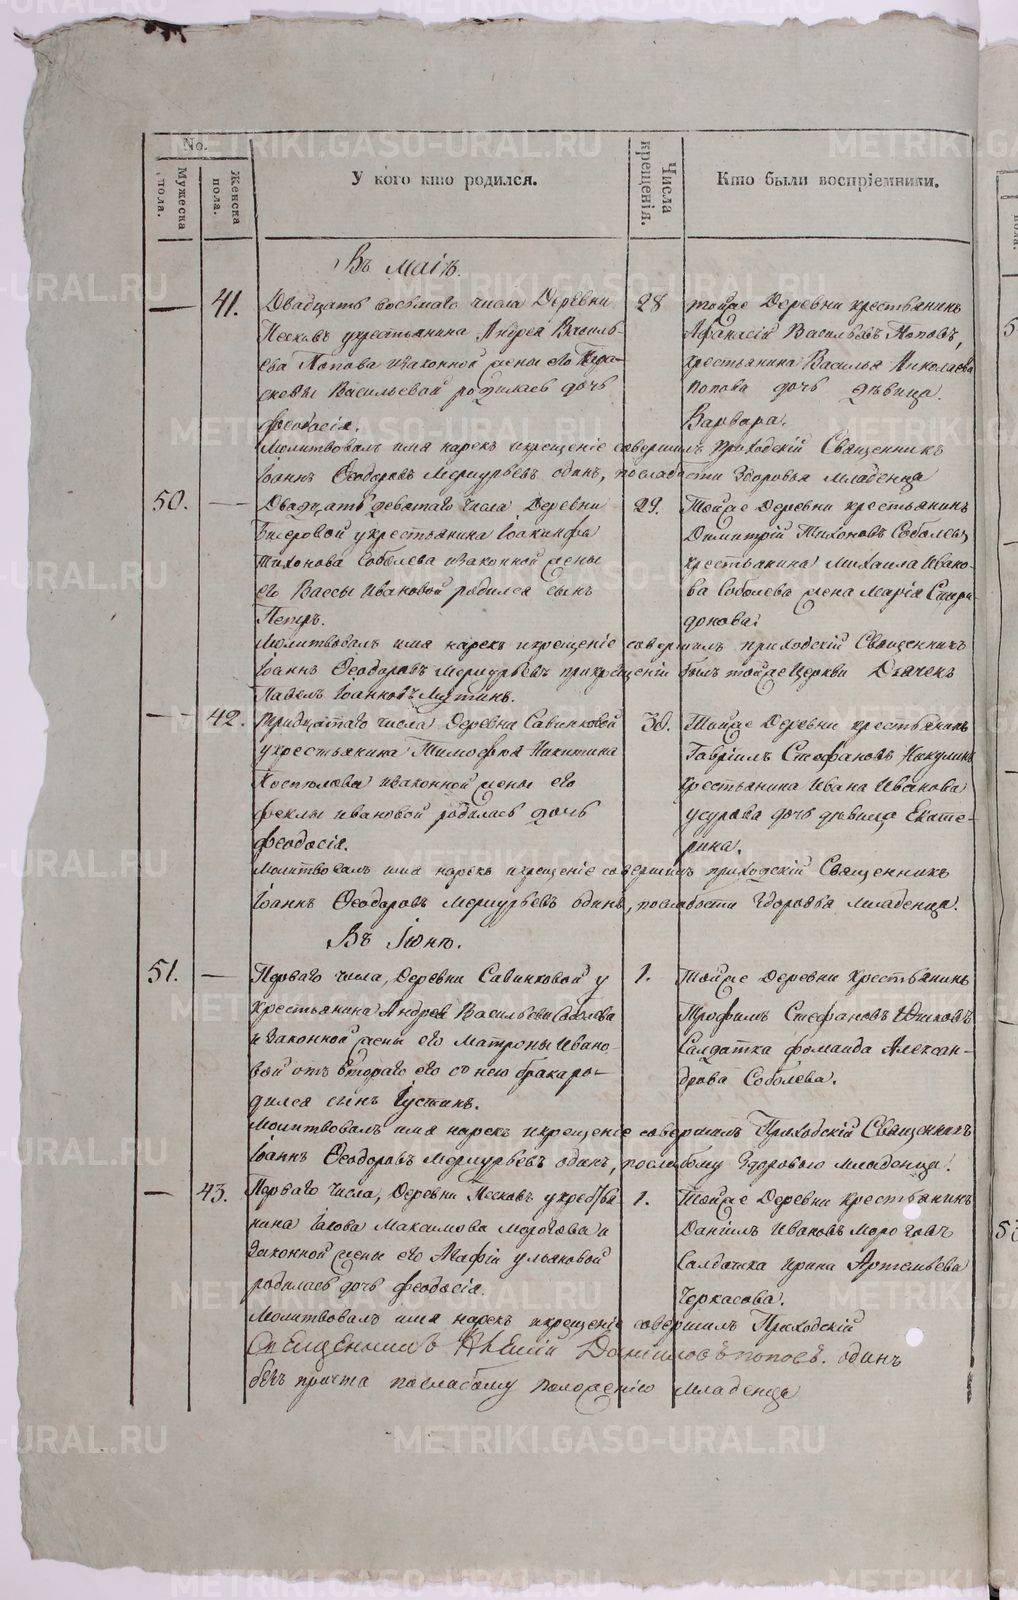 No.
Мужеска пола.
Женска пола.
У кого кто родился.
Числа крещенія.
Кто были воспріемники.
Въ Маіѣ.
41. Двадцать восьмаго числа Деревни
Песковъ укрестьянина Андрея Василь-
ева Попова изаконной жены его Пара-
скевы Васильевой родилась дочь
Феодосія.
28
тойже Деревни крестьянинъ
Афанасій Васильевъ Поповъ,
крестьянина Василья Николаева
Попова дочь дѣвица.
Варвара.
Молитвовалъ имя нарекъ икрещеніе совершилъ приходскій Священникъ
Іоаннъ Ѳеодоровъ Меркурьевъ одинъ, послабости здоровья младенца
50. Двадцать девятаго числа Деревни
укрестьянина Іоакинфа
Тихонова Соболева изаконной жены
его Вассы Ивановой родился сынъ
Петръ.
29.
Тойже Деревни крестьянинъ
Димитрій Тихоновъ Соболевъ
крестьянина Михаила Ивано-
ва Соболева жена Марія Спири-
донова.
Молитвовалъ имя нарекъ икрещеніе совершилъ приходскій Священникъ
Іоаннъ Ѳеодоровъ Меркурьевъ прикрещеніи былъ тойже Церкви Дьячекъ
Павелъ Іоанновъ
42. Тридцатаго числа Деревни Савинковой
укрестьянина Тимофея Никитина
Костылева изаконной жены его
Феклы Ивановой родилась дочь
Феодосія.
30.
Тойже Деревни крестьянинъ
Гавріилъ Стефановъ Никулинъ
крестьянина Ивана Иванова
дочь дѣвица Екате-
рина.
Молитвовалъ имя нарекъ икрещеніе совершилъ приходскій Священникъ
Іоаннъ Ѳеодоровъ Меркурьевъ одинъ, послабости здоровья младенца.
Въ Іюнѣ.
51. Перваго числа, Деревни Савинковой у
крестьянина Андрея Васильева Соболева
и законной жены его Матроны Ивано-
вой отъ втораго его съ нею брака ро-
дился сынъ Іустинъ.
1.
Тойже Деревни крестьянинъ
Трофимъ Стефановъ
Салдатка Фомаида Алексан-
дрова Соболева.
Молитвовалъ имя нарекъ икрещеніе совершилъ Приходскій Священникъ
Іоаннъ Ѳеодоровъ Меркурьевъ одинъ, послабому здоровью младенца.
43. Перваго числа, Деревни Песковъ укрестья
нина Іакова Максимова Морогова и
законной жены его Агафіи Ульяновой
родилась дочь Феодосія.
1.
Тойже Деревни крестьянинъ
Даніилъ Ивановъ Мороговъ
Салдатка Ирина Артемьева
Черкасова.
Молитвовалъ имя нарекъ икрещеніе совершилъ Приходскій
Священникъ Алексій Даниловъ Поповъ. одинъ
безъ причта послабому положенію младенца